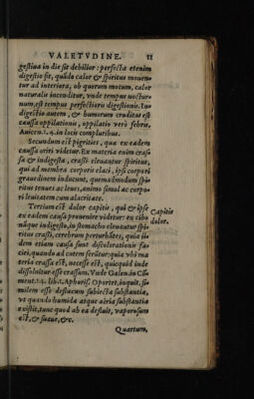 VALETVDINE. 11
gestiua in die sit debilior: perfecta etenim
digestio fit, quādo calor & spiritus mouen
tur ad interiora, ob quorum motum, calor
naturalis incenditur, vnde tempus noctur
num, est tempus perfectioris digestionis.
digestio autem, & humorum cruditas est
causa oppilationis, oppilatio verò febris,
Auicen. 1. 4. in locis compluribus.
Secundum est pigrities, quæ ex eadem
causa oriri videtur. Ex materia enim cras
sa & indigesta, crassi eleuantur spiritus,
qui ad membra corporis elati, ipsi corpori
grauedinem inducunt, quemadmodum spi
ritus tenues ac leues, animo simul ac corpo
ri leuitatem cum alacritate.
Tertium est dolor capitis, qui & ipse
ex eadem causa prouenire videtur: ex cibo
Capitis
dolor.
nāque indigesto, in stomacho eleuantur spi
ritus crassi, cerebrum perturbātes, quia
dem etiam causa sunt discolorationis fa
ciei, quando ad cutem ferūtur: quia vbi ma
teria crassa est, necesse est, quicquid inde
dissoluitur esse crassum. Vnde Galen. in Cō
ment. lib. 1. Aphoris. Oportet, inquit, si
milem esse defluxum subiecta substantia,
vt quando humida atque aëria substantia
extitit, tunc quod ab ea defluit, vaporosum
est, & succus, &c.
Quartum,